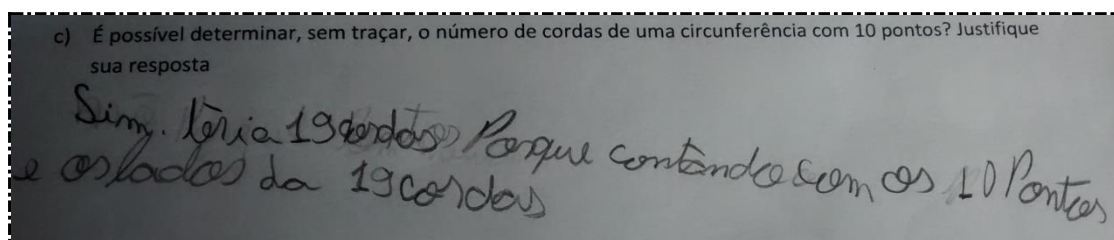 c) É possível determinar, sem traçar, o número de cordas de uma circunferência com 10 pontos? Justifique
sua resposta
Sim. teria 19 cordas Porque contando com os 10 Pontos
e os lados da 19 cordas